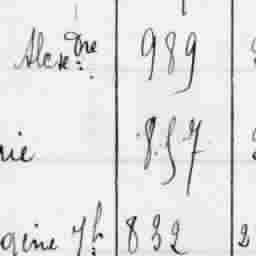 Alexdre 989
rie 857
gine Jh 832 2